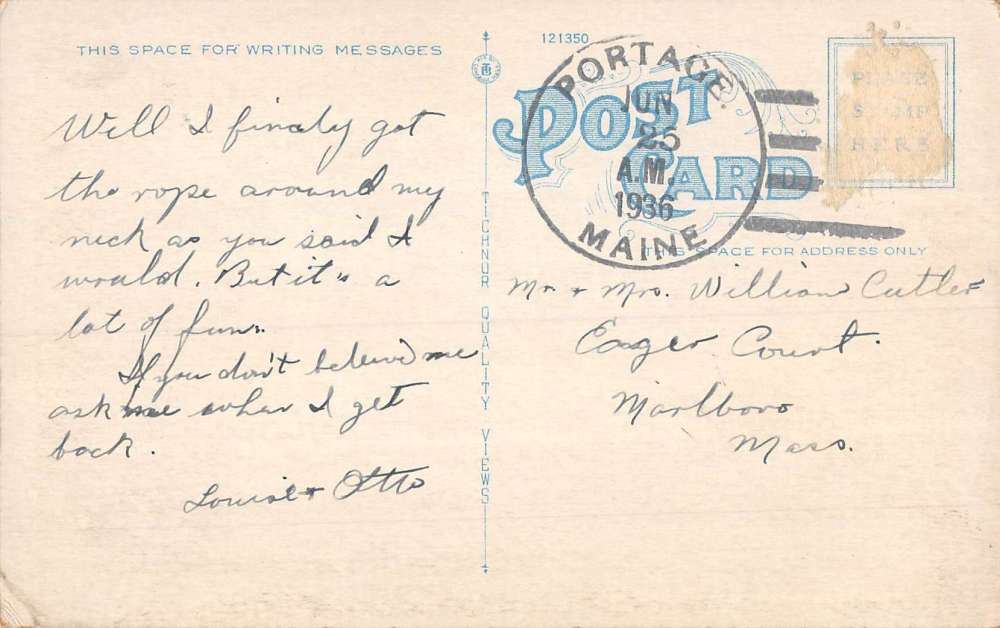 THIS SPACE FOR WRITING MESSAGES
Well I finaly got
the rope around my
neck as you said I
would. But it's a
lot of fun.
If you don't believe me
ask me when I get
back.
Louise + Otto
TICHNOR QUALITY VIEWS
121350
POST CARD
PORTAGE.
JUN
25
A.M.
1936
MAINE
PLACE
STAMP
HERE
THIS SPACE FOR ADDRESS ONLY
Mr. + Mrs. William Cutler
Eager Court.
Marlboro
Mass.